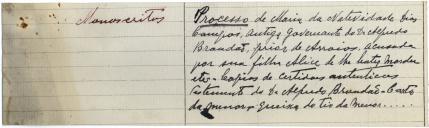 Manoscritos
Processo de Maria da Natividade Dias
Campos, antiga governante do Dr Alfredo
Brandão, prior de Arroios, acusada
por sua filha Alice de lhe bater, morder
etc - Copias de certidões autenticas
testamento do Dr Alfredo Brandão - Carta
da menor - Queixa do tio da menor.....